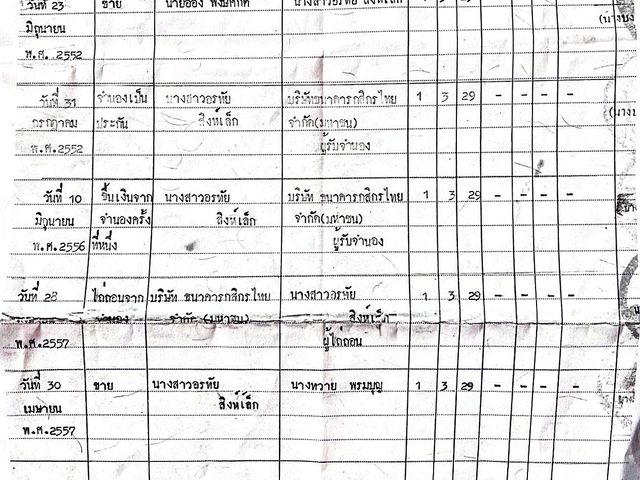 วันที่ 23 ขาย นายฮ้อง นางสาวอรทัย สิงห์เล็ก 1 3 29 - - - -
มิถุนายน
พ.ศ. 2552
วันที่ 31 จำนองเป็น นางสาวอรทัย บริษัทธนาคารกสิกรไทย 1 3 29 - - - -
กรกฎาคม ประกัน สิงห์เล็ก จำกัด(มหาชน)
พ.ศ.2552 ผู้รับจำนอง
วันที่ 10 ขึ้นเงินจาก นางสาวอรทัย บริษัท ธนาคารกสิกรไทย 1 3 29 - - - -
มิถุนายน จำนองครั้ง สิงห์เล็ก จำกัด(มหาชน)
พ.ศ.2556 ที่หนึ่ง ผู้รับจำนอง
วันที่ 28 ไถ่ถอนจาก บริษัท ธนาคารกสิกรไทย นางสาวอรทัย 1 3 29 - - - -
จำนอง จำกัด (มหาชน) สิงห์เล็ก
พ.ศ.2557 ผู้ไถ่ถอน
วันที่ 30 ขาย นางสาวอรทัย นางหวาย พรมบุญ 1 3 29 - - - -
เมษายน สิงห์เล็ก
พ.ศ.2557